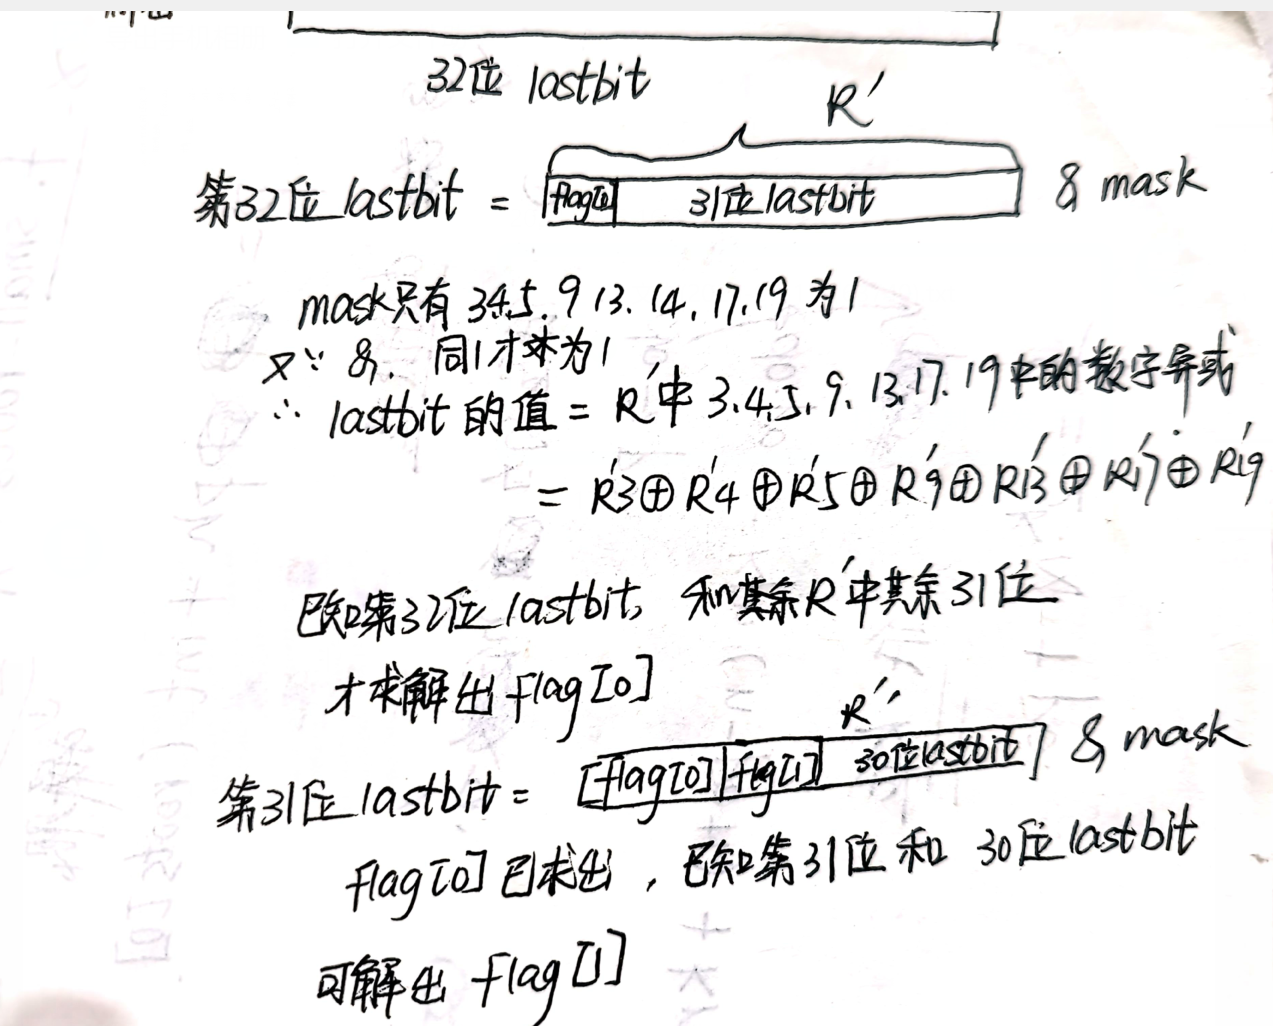 32位 lastbit
R′
第32位 lastbit = flag[0] 31位 lastbit & mask
mask只有 3 4.5. 9 13. 14. 17. 19 为1
又∵ &, 同1才为1
∴ lastbit 的值 = R′中 3.4.5.9.13.17.19中的数字异或
= R′3⊕R′4⊕R′5⊕R′9⊕R′13⊕R′17⊕R′19
已知第32位 lastbit, 和其余R′中其余31位
才求解出 flag[0]
R′′
第31位 lastbit = [flag[0] flg[1] 30位lastbit] & mask
flag[0]已求出，已知第31位 和 30位 lastbit
可解出 flag[1]